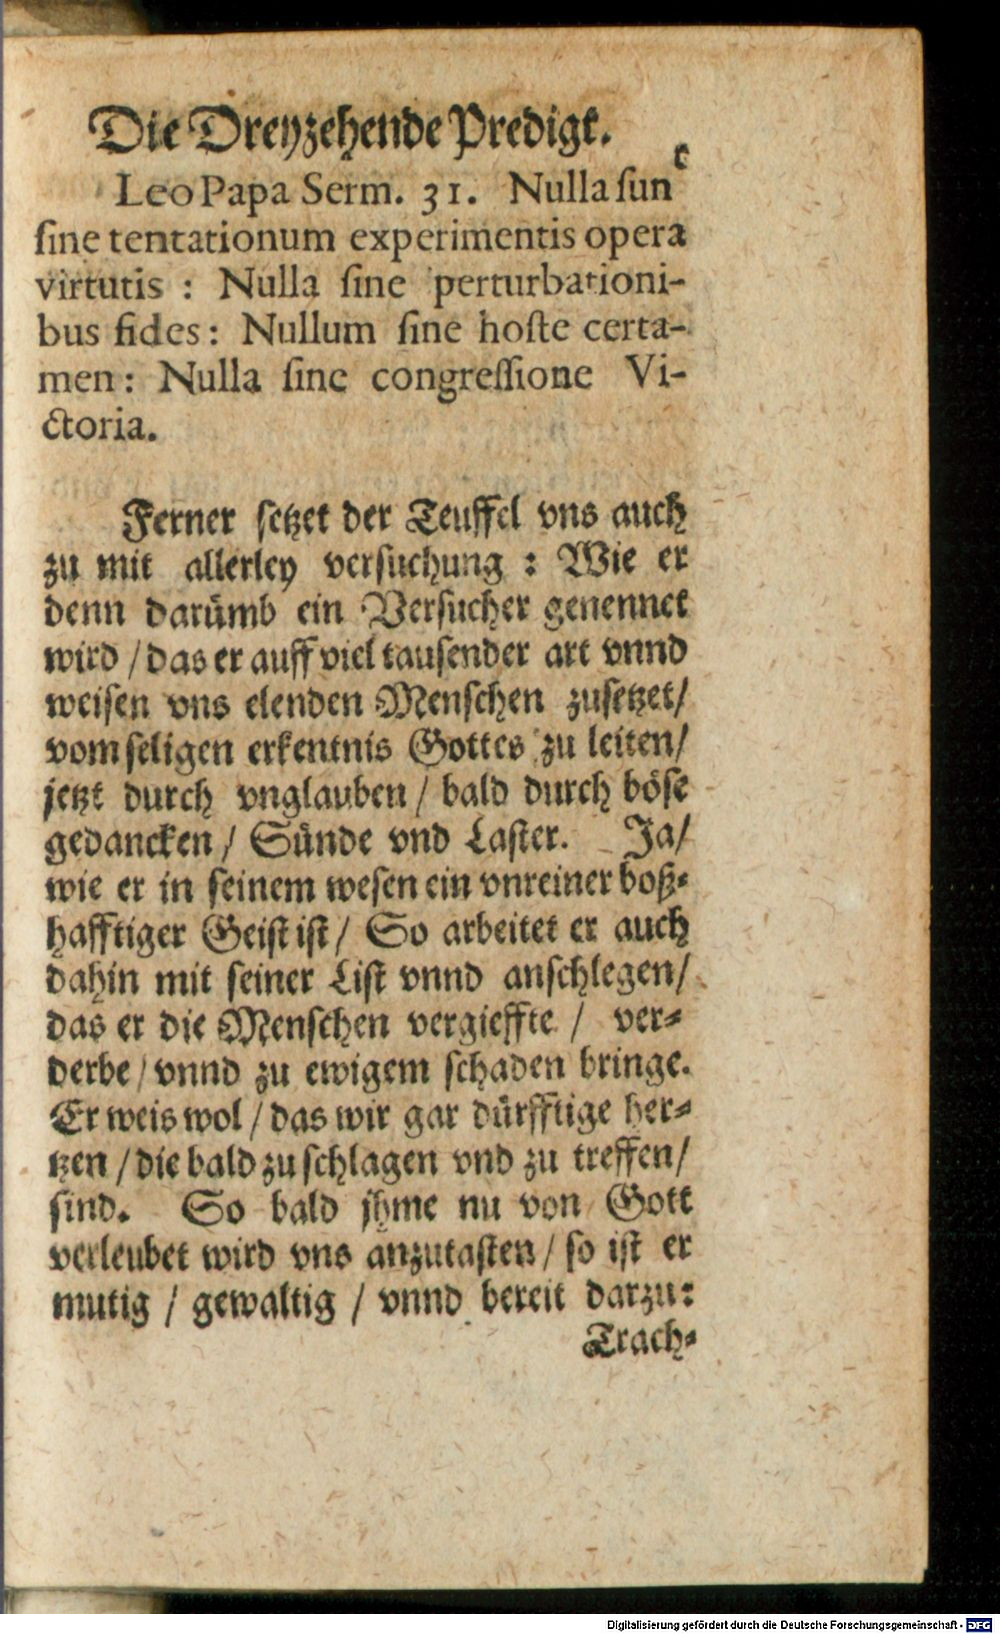 Die Dreyzehende Predigt.
Leo Papa Serm. 31. Nulla ſunt
ſine tentationum experimentis opera
virtutis : Nulla ſine perturbationi-
bus fides : Nullum ſine hoſte certa-
men : Nulla ſine congreſſione Vi-
ctoria.
Ferner ſetzet der Teuffel vns auch
zu mit allerley verſuchung : Wie er
denn darümb ein Verſucher genennet
wird / das er auff viel tauſender art vnnd
weiſen vns elenden Menſchen zuſetzet /
vom ſeligen erkentnis Gottes zu leiten /
jetzt durch vnglauben / bald durch böſe
gedancken / Sünde vnd Laſter. Ja /
wie er in ſeinem weſen ein vnreiner boß-
hafftiger Geiſt iſt / So arbeitet er auch
dahin mit ſeiner Liſt vnnd anſchlegen /
das er die Menſchen vergieffte / ver-
derbe / vnnd zu ewigem ſchaden bringe.
Er weis wol / das wir gar dürfftige her-
tzen / die bald zu ſchlagen vnd zu treffen /
ſind. So bald jhme nu von Gott
verleubet wird vns anzutaſten / ſo iſt er
mutig / gewaltig / vnnd bereit darzu :
Trach-
Digitalisierung gefördert durch die Deutsche Forschungsgemeinschaft - DFG